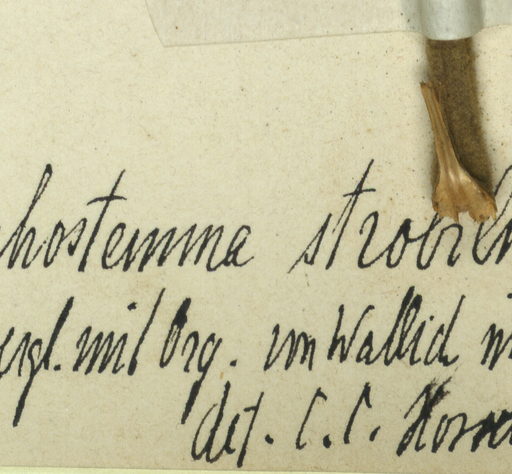 hostemma strobil
vrgl. mit Org. von Wallich
det. C. C. Hosse